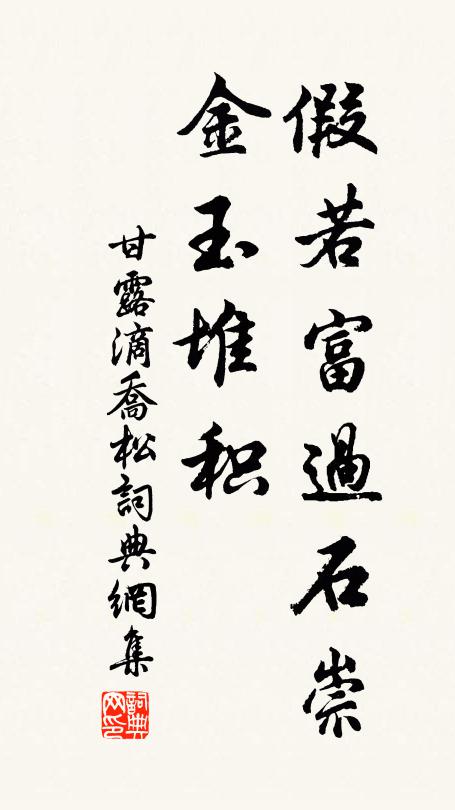 假若富過石崇
金玉堆积
甘露滴喬松詞典網集
詞典网印